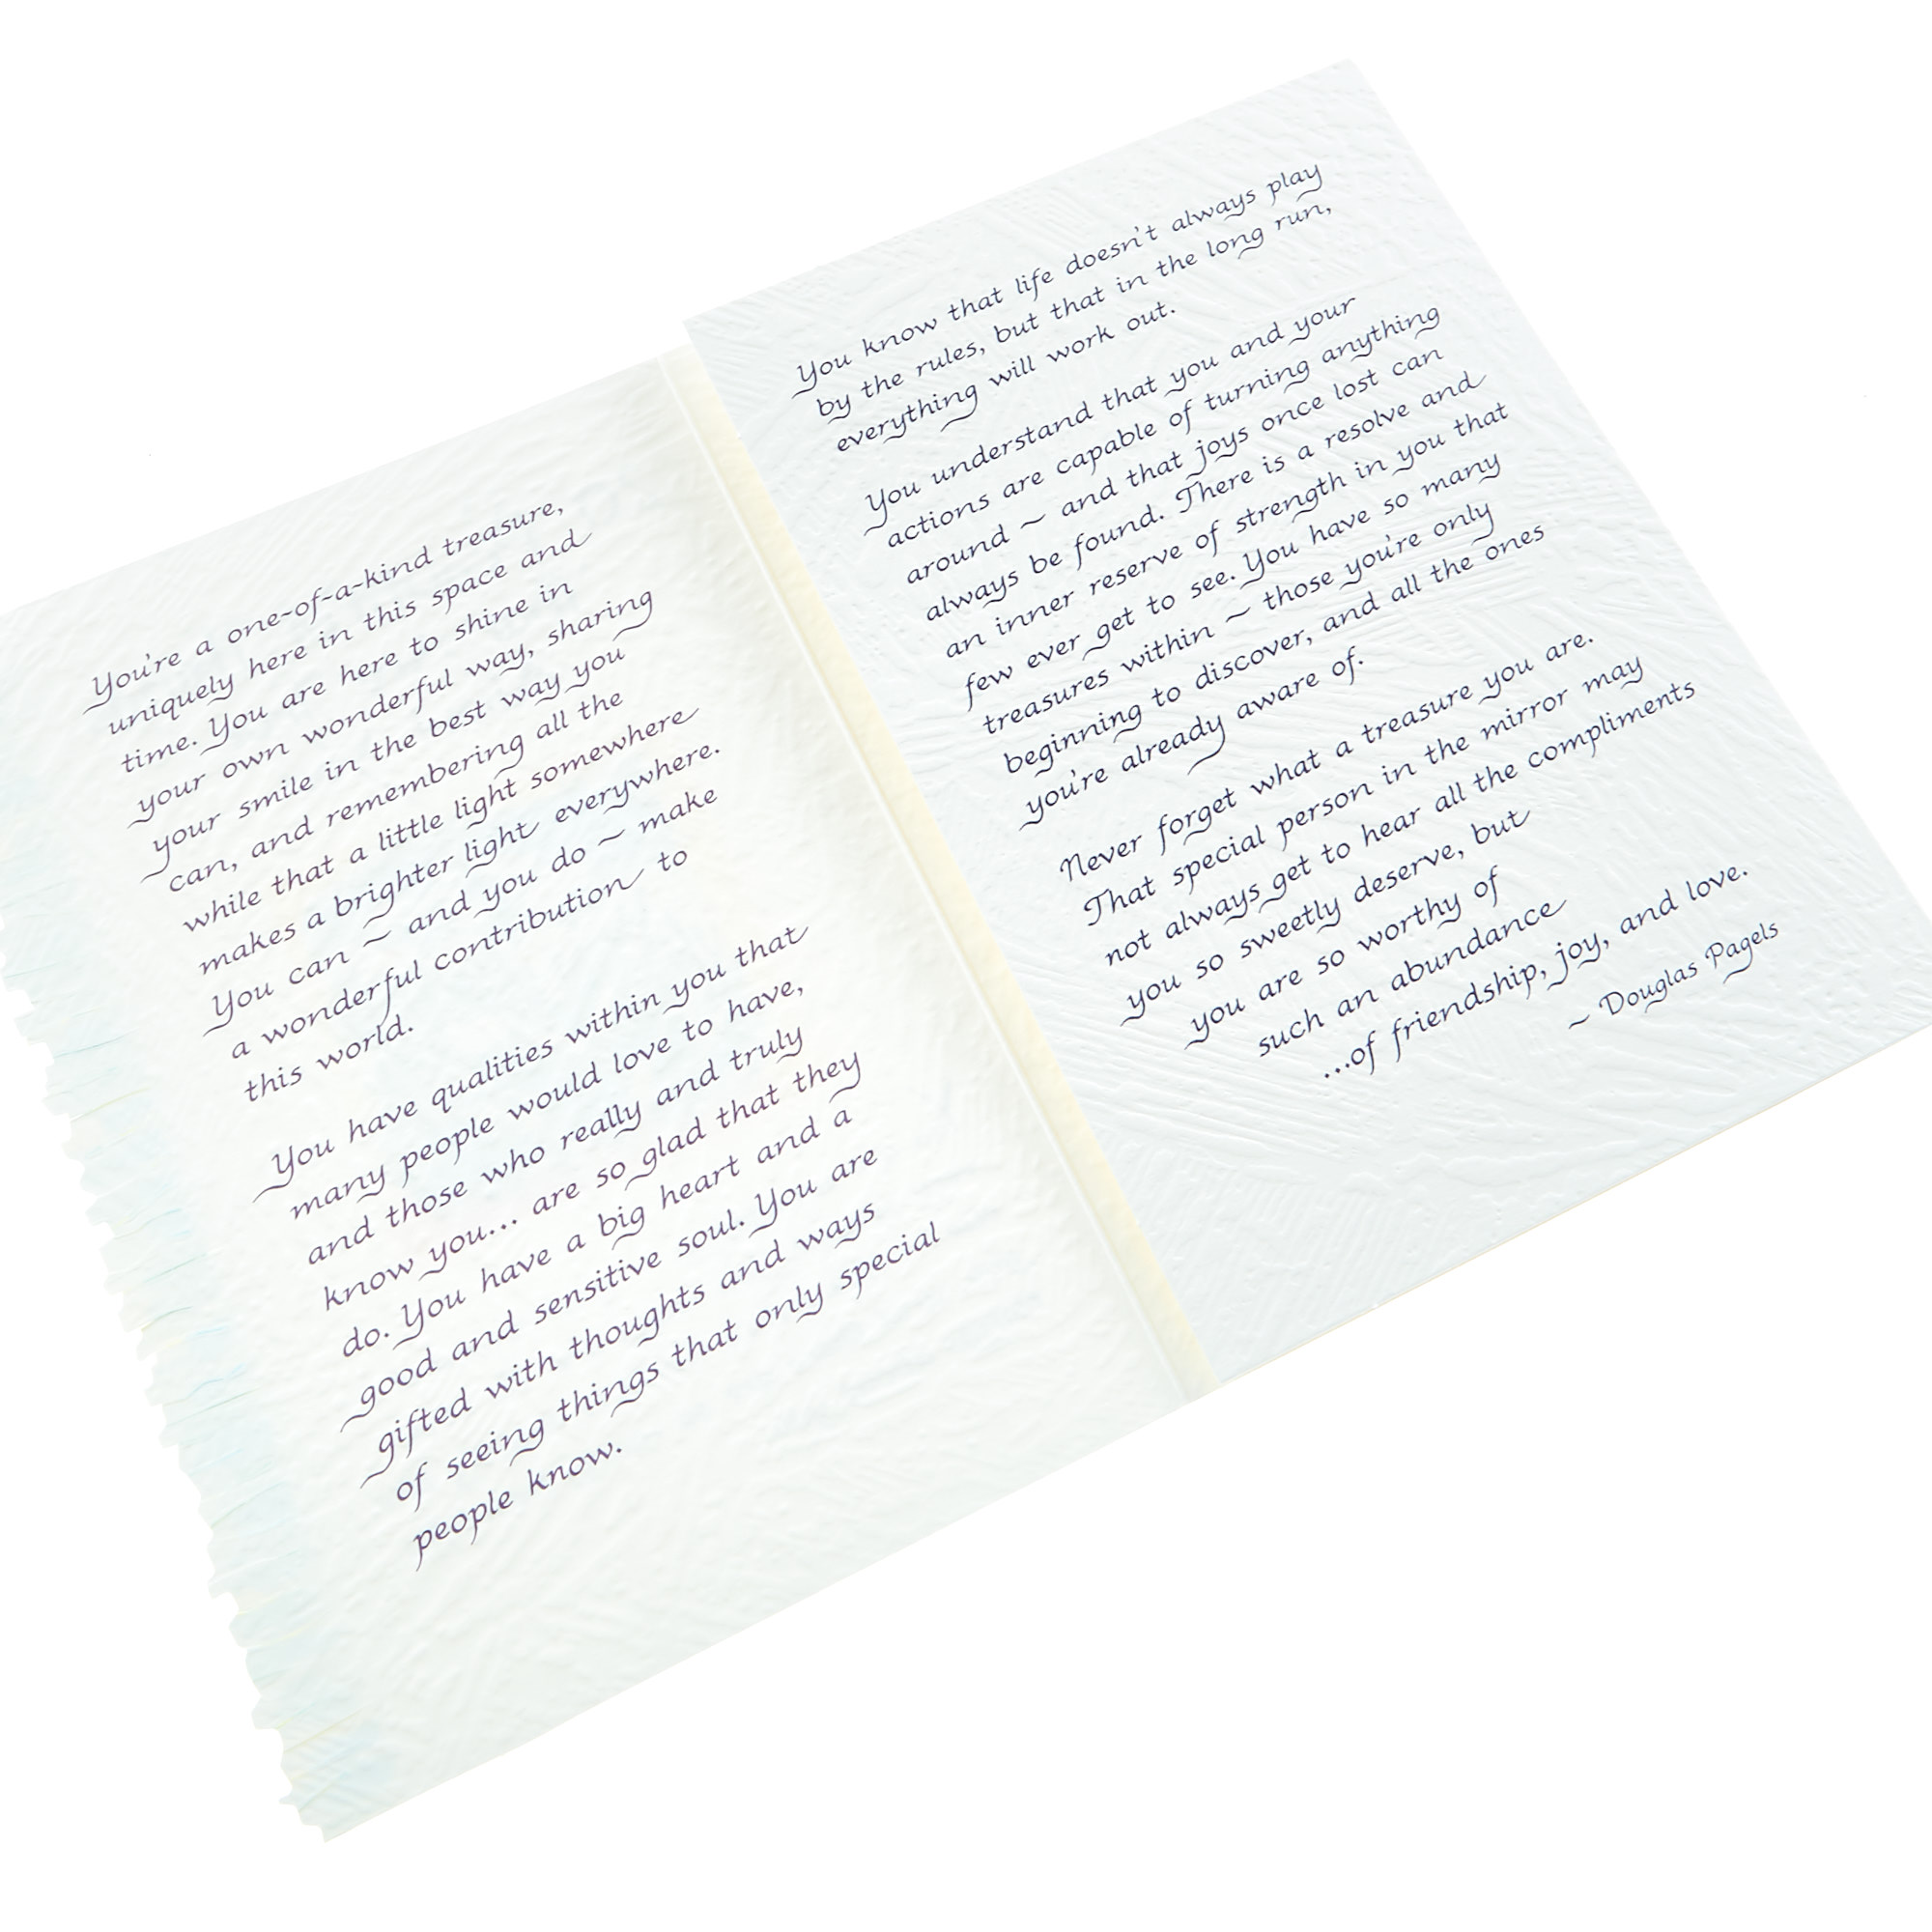 You're a one-of-a-kind treasure,
uniquely here in this space and
time. You are here to shine in
your own wonderful way, sharing
your smile in the best way you
can, and remembering all the
while that a little light somewhere
makes a brighter light everywhere.
You can ~ and you do ~ make
a wonderful contribution to
this world.
You have qualities within you that
many people would love to have,
and those who really and truly
know you... are so glad that they
do. You have a big heart and a
good and sensitive soul. You are
gifted with thoughts and ways
of seeing things that only special
people know.
You know that life doesn't always play
by the rules, but that in the long run,
everything will work out.
You understand that you and your
actions are capable of turning anything
around ~ and that joys once lost can
always be found. There is a resolve and
an inner reserve of strength in you that
few ever get to see. You have so many
treasures within ~ those you're only
beginning to discover, and all the ones
you're already aware of.
Never forget what a treasure you are.
That special person in the mirror may
not always get to hear all the compliments
you so sweetly deserve, but
you are so worthy of
such an abundance
...of friendship, joy, and love.
~ Douglas Pagels